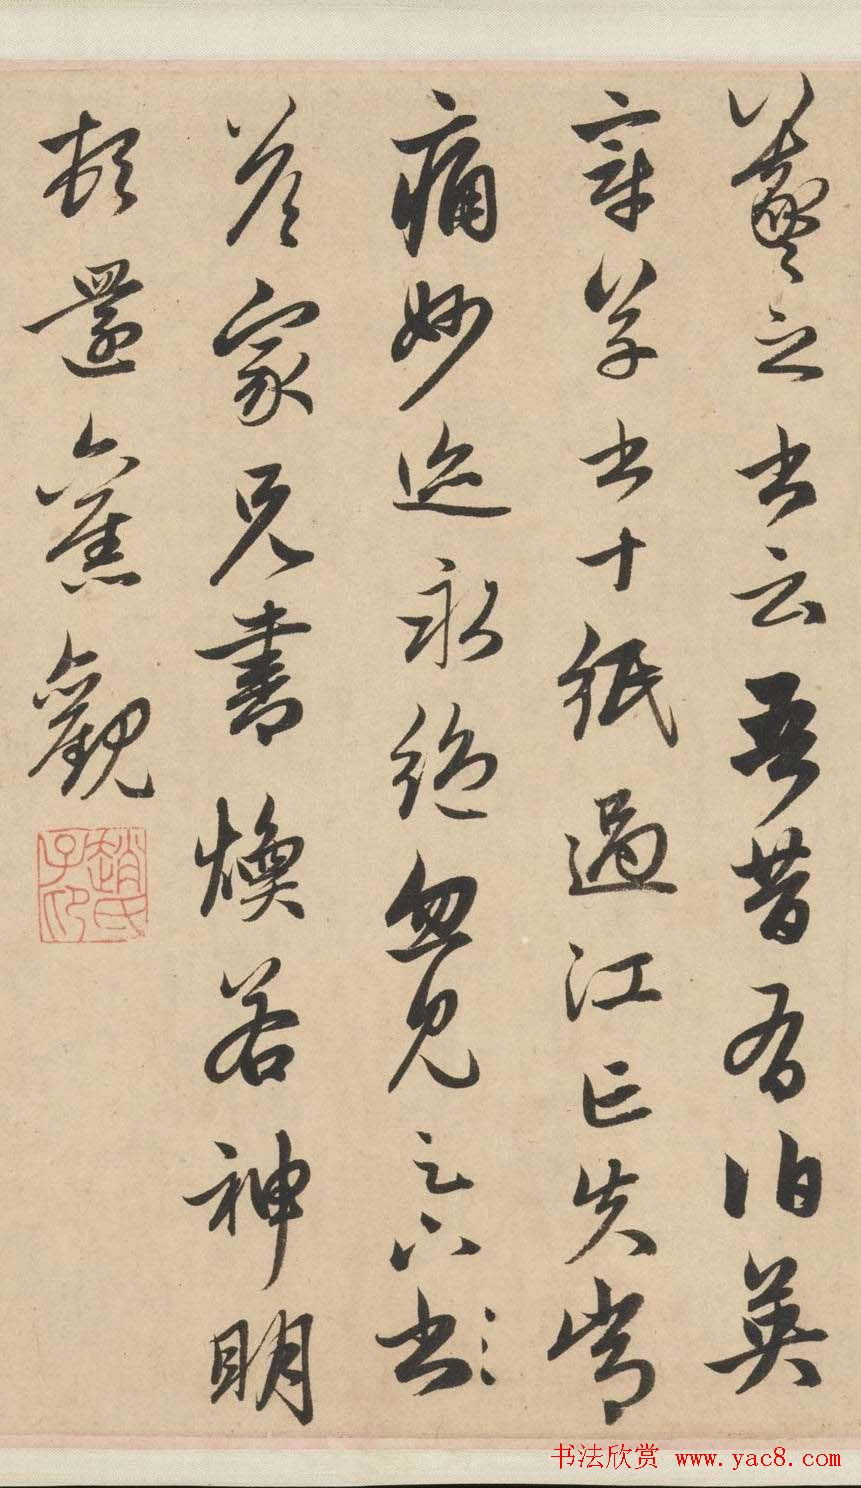 羲之書云吾昔有伯英
章草書十紙過江亡失常
痛妙迹永絕忽見足下書
答家兄書煥若神明
頓還舊觀
趙氏子印
书法欣赏 www.yac8.com